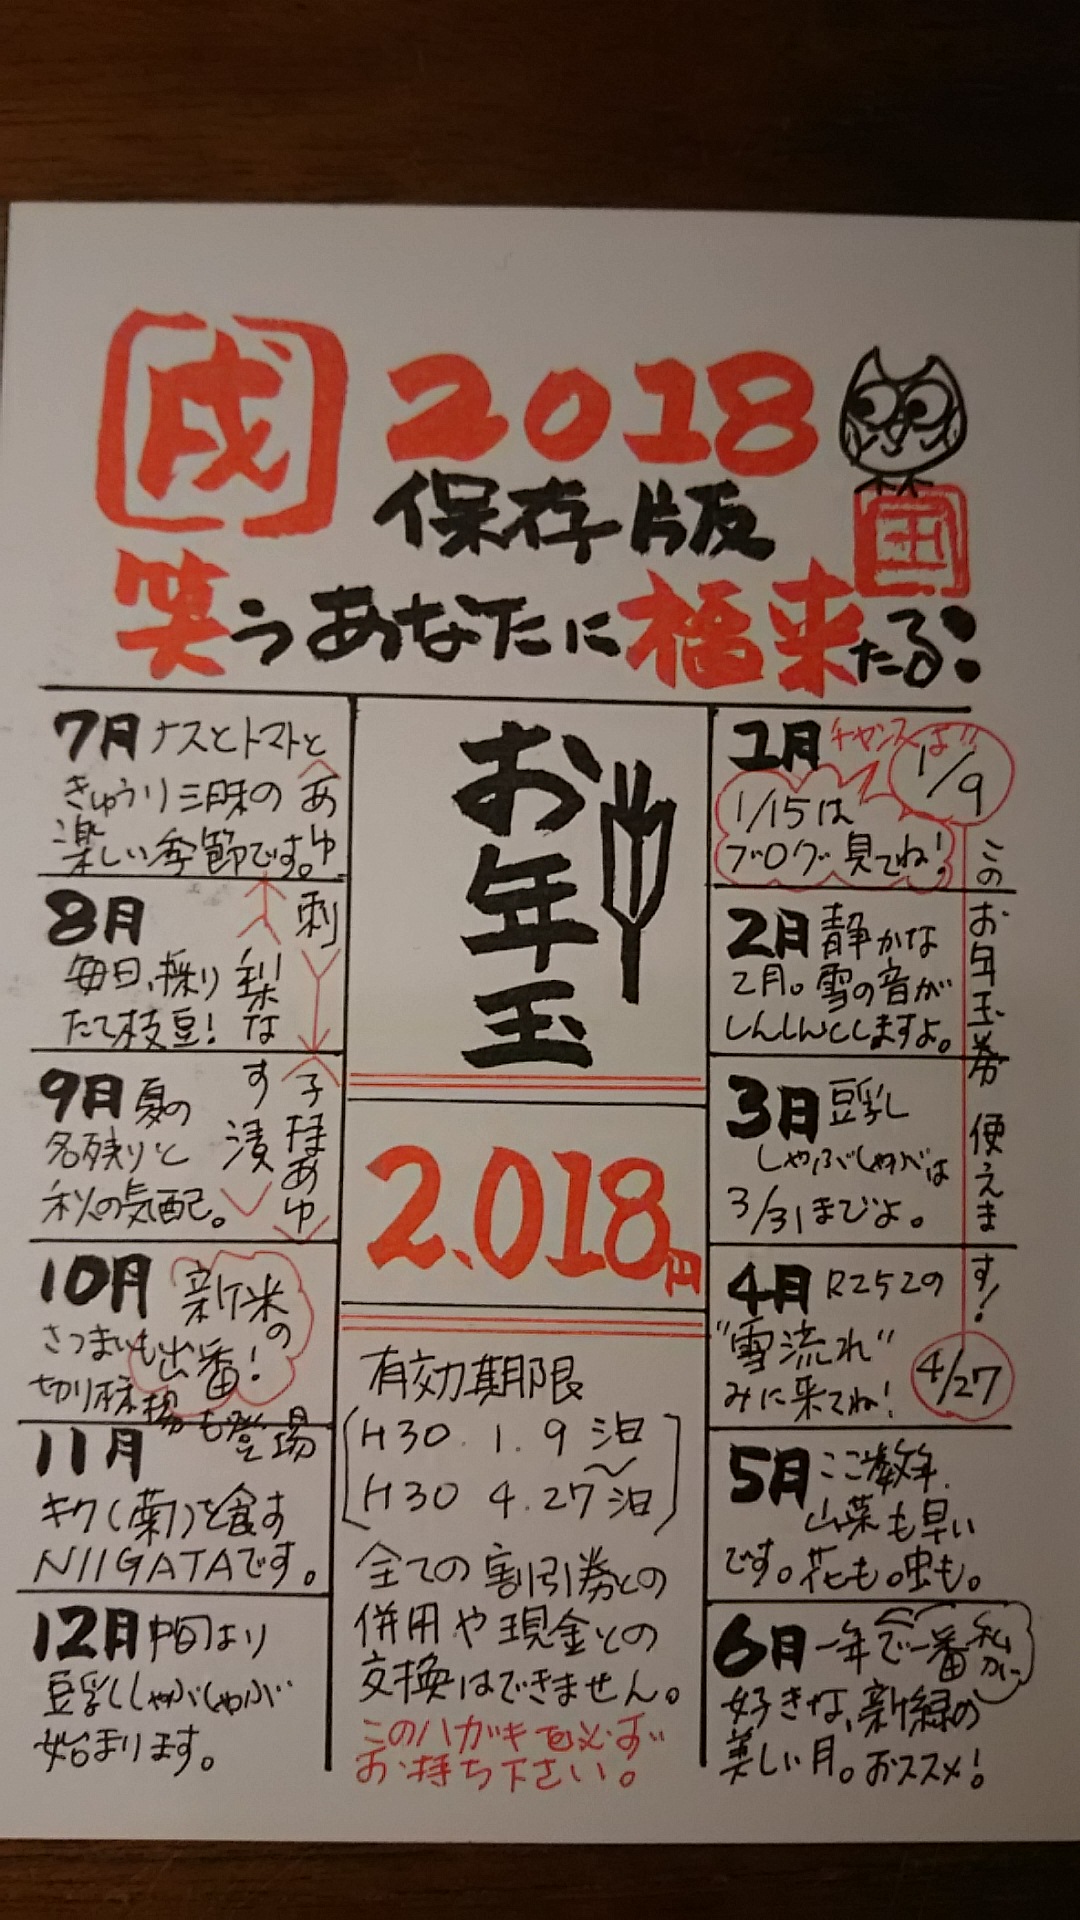 戌
2018
保存版
笑うあなたに福来たる!
お年玉
2,018円
有効期限
H30.1.9泊
〜
H30 4.27泊
全ての割引券との
併用や現金との
交換はできません。
このハガキを必ず
お持ち下さい。
1月 チャンスは
1/15は
ブログ見てね!
1/9
このお年玉券使えます!
4/27
2月 静かな
2月。雪の音が
しんしんとしますよ。
3月 豆乳
しゃぶしゃぶは
3/31までよ。
4月 R252の
"雪流れ"
みに来てね!
5月 ここ数年、
山菜も早い
です。花も。虫も。
6月 一年で一番私が
好きな、新緑の
美しい月。おススメ!
7月 ナスとトマトと
きゅうり三昧の
楽しい季節です。
あゆ刺
8月
毎日、採り
たて枝豆!
梨なす漬
子持あゆ
9月 夏の
名残りと
秋の気配。
10月 新米の
出番!
さつまいも
切り株
も登場
11月
キク(菊)を食す
NIIGATAです。
12月 中旬より
豆乳しゃぶしゃぶ
始まります。